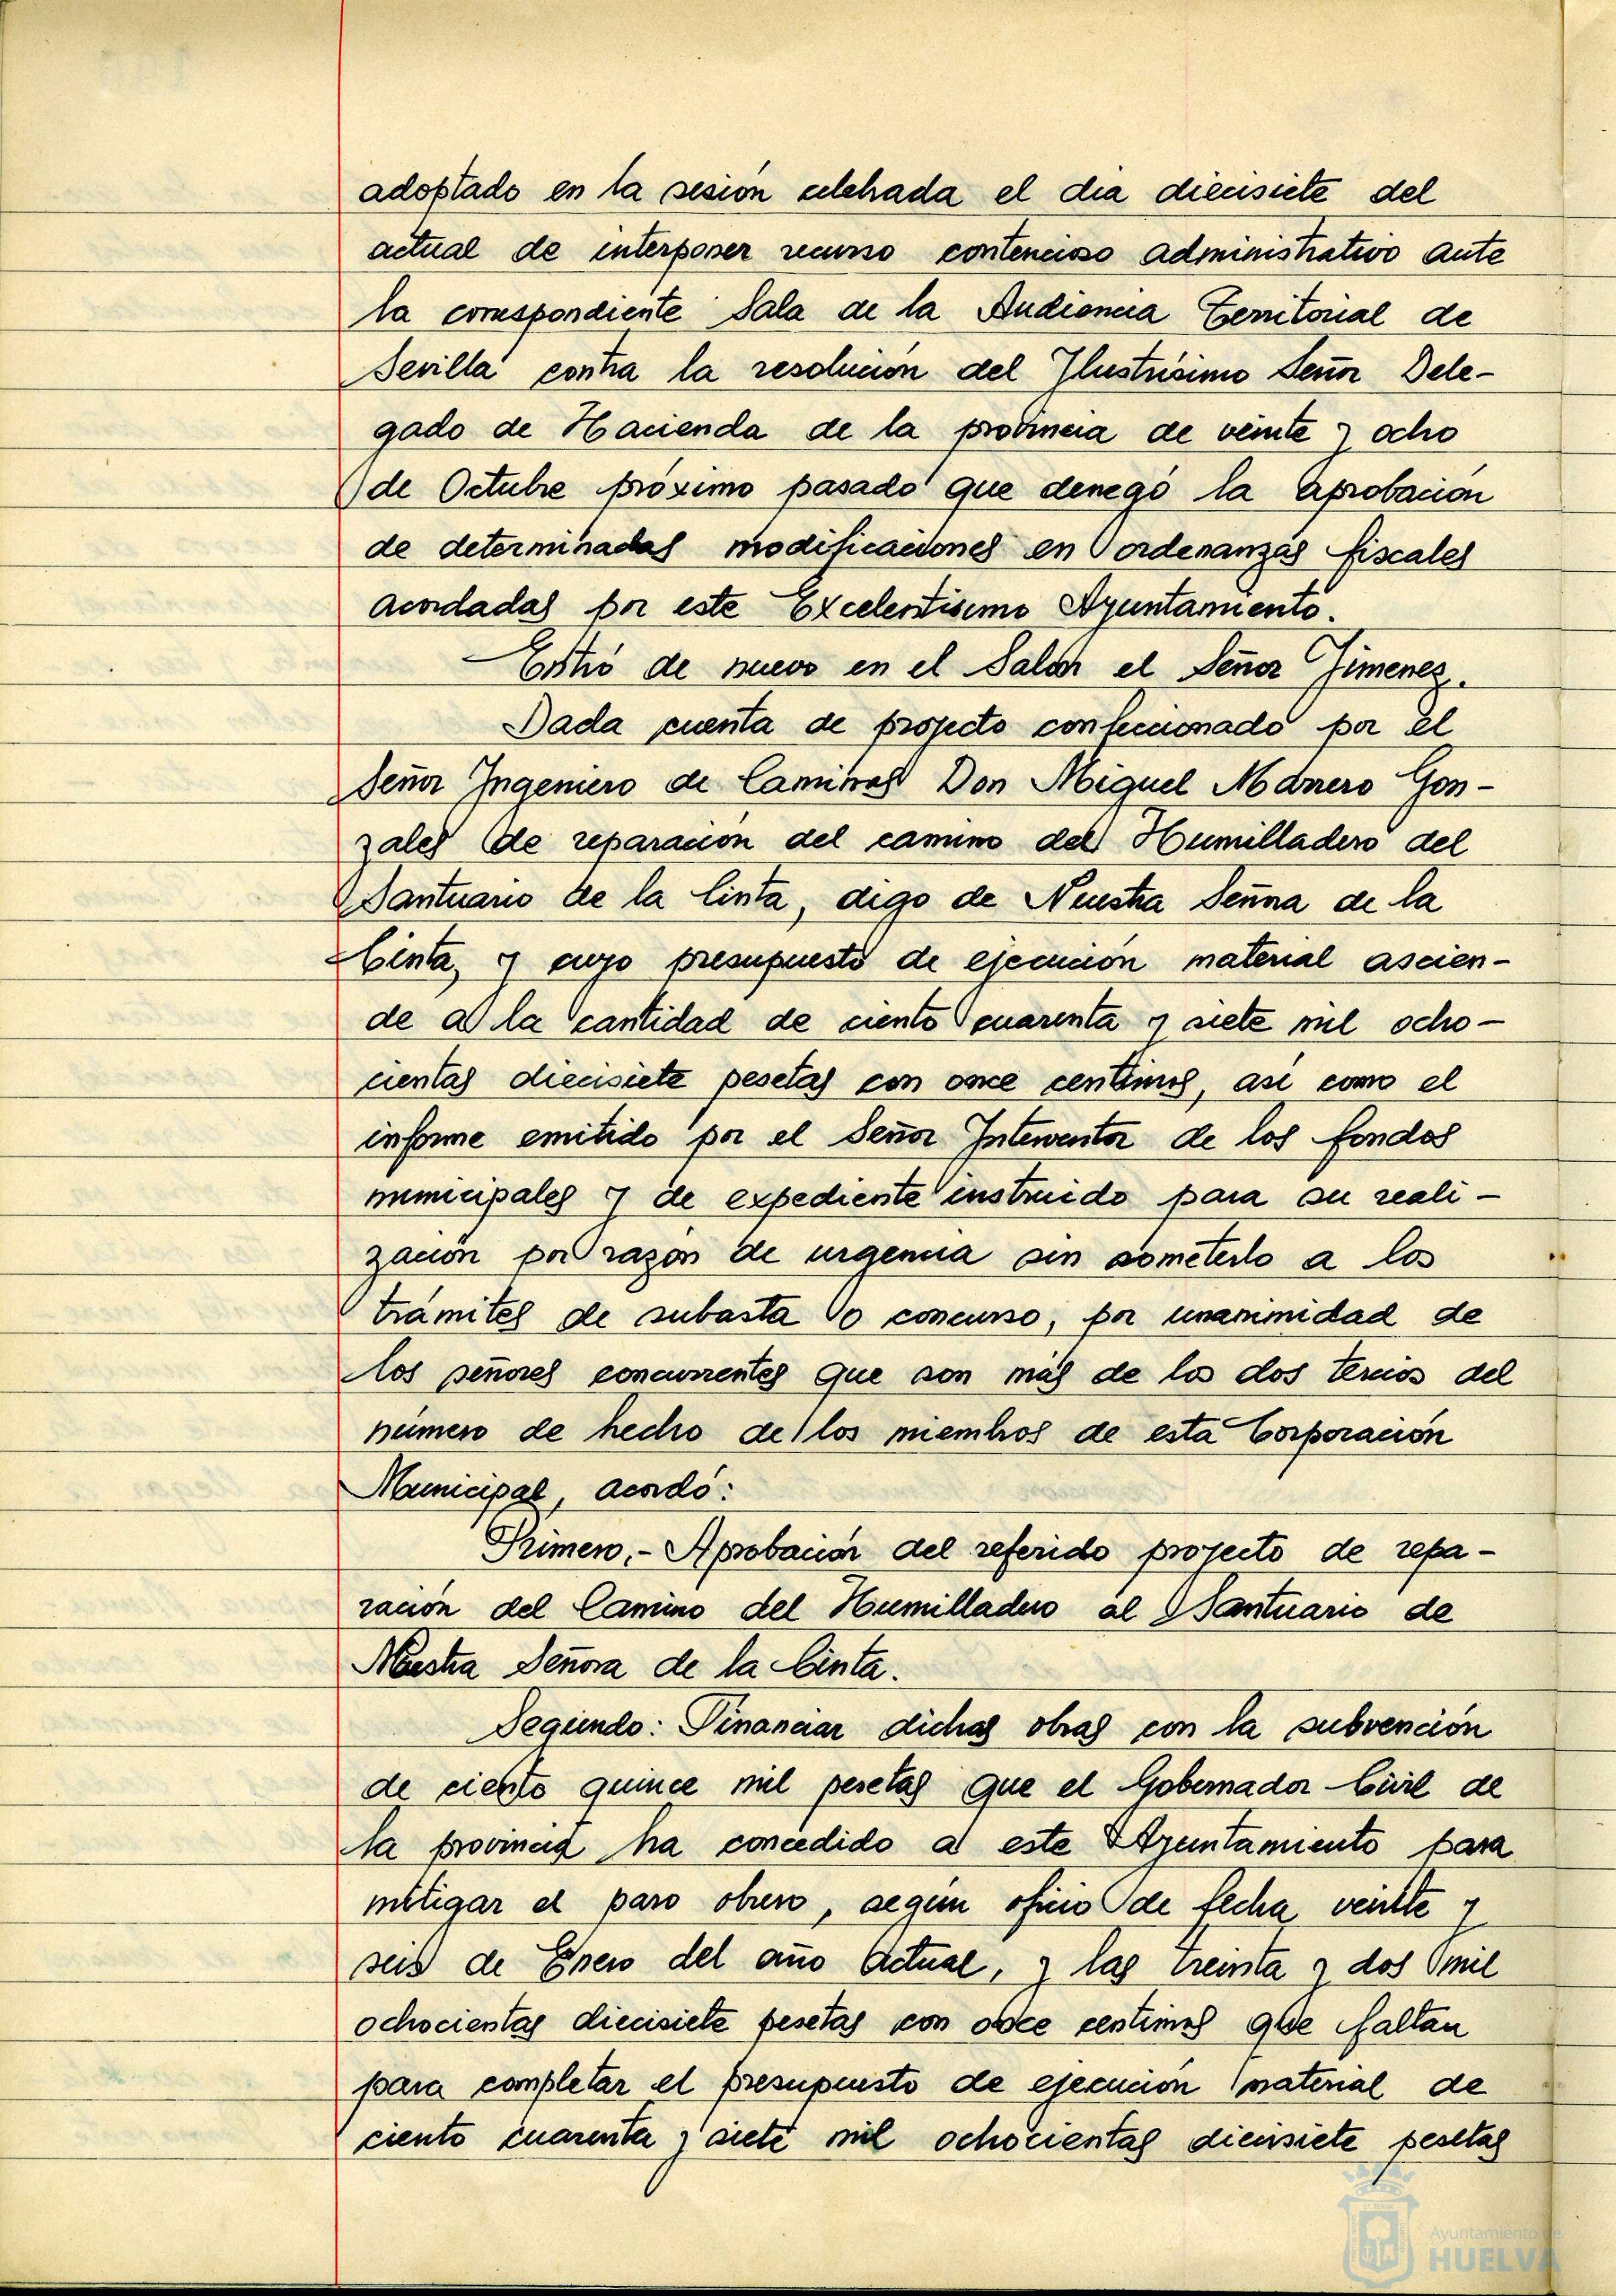 adoptado en la sesión celebrada el dia diecisiete del
actual de interponer recurso contencioso administrativo ante
la correspondiente Sala de la Audiencia Territorial de
Sevilla contra la resolución del Ilustrísimo Señor Dele-
gado de Hacienda de la provincia de veinte y ocho
de Octubre próximo pasado que denegó la aprobación
de determinadas modificaciones en ordenanzas fiscales
acordadas por este Excelentísimo Ayuntamiento.
Entró de nuevo en el Salón el Señor Jimenez.
Dada cuenta de projecto confeccionado por el
Señor Ingeniero de Caminos Don Miguel Manero Gon-
zales de reparación del camino del Humilladero del
Santuario de la Cinta, digo de Nuestra Señna de la
Cinta, y cuyo presupuesto de ejecución material ascien-
de a la cantidad de ciento cuarenta y siete mil ocho-
cientas diecisiete pesetas con once centimos, asi como el
informe emitido por el Señor Interventor de los fondos
municipales y de expediente instruido para su reali-
zación por razón de urgencia sin someterlo a los
trámites de subasta o concurso, por unanimidad de
los señores concurrentes que son más de los dos tercios del
número de hecho de los miembros de esta Corporación
Municipal, acordó:
Primero.- Aprobación del referido proyecto de repa-
ración del Camino del Humilladero al Santuario de
Nuestra Señora de la Cinta.
Segundo: Financiar dichas obras con la subvención
de ciento quince mil pesetas que el Gobernador Civil de
la provincia ha concedido a este Ayuntamiento para
mitigar el paro obrero, según oficio de fecha veinte y
seis de Enero del año actual, y las treinta y dos mil
ochocientas diecisiete pesetas con once centimos que faltan
para completar el presupuesto de ejecución material de
ciento cuarenta y siete mil ochocientas diecisiete pesetas
Ayuntamiento de
HUELVA